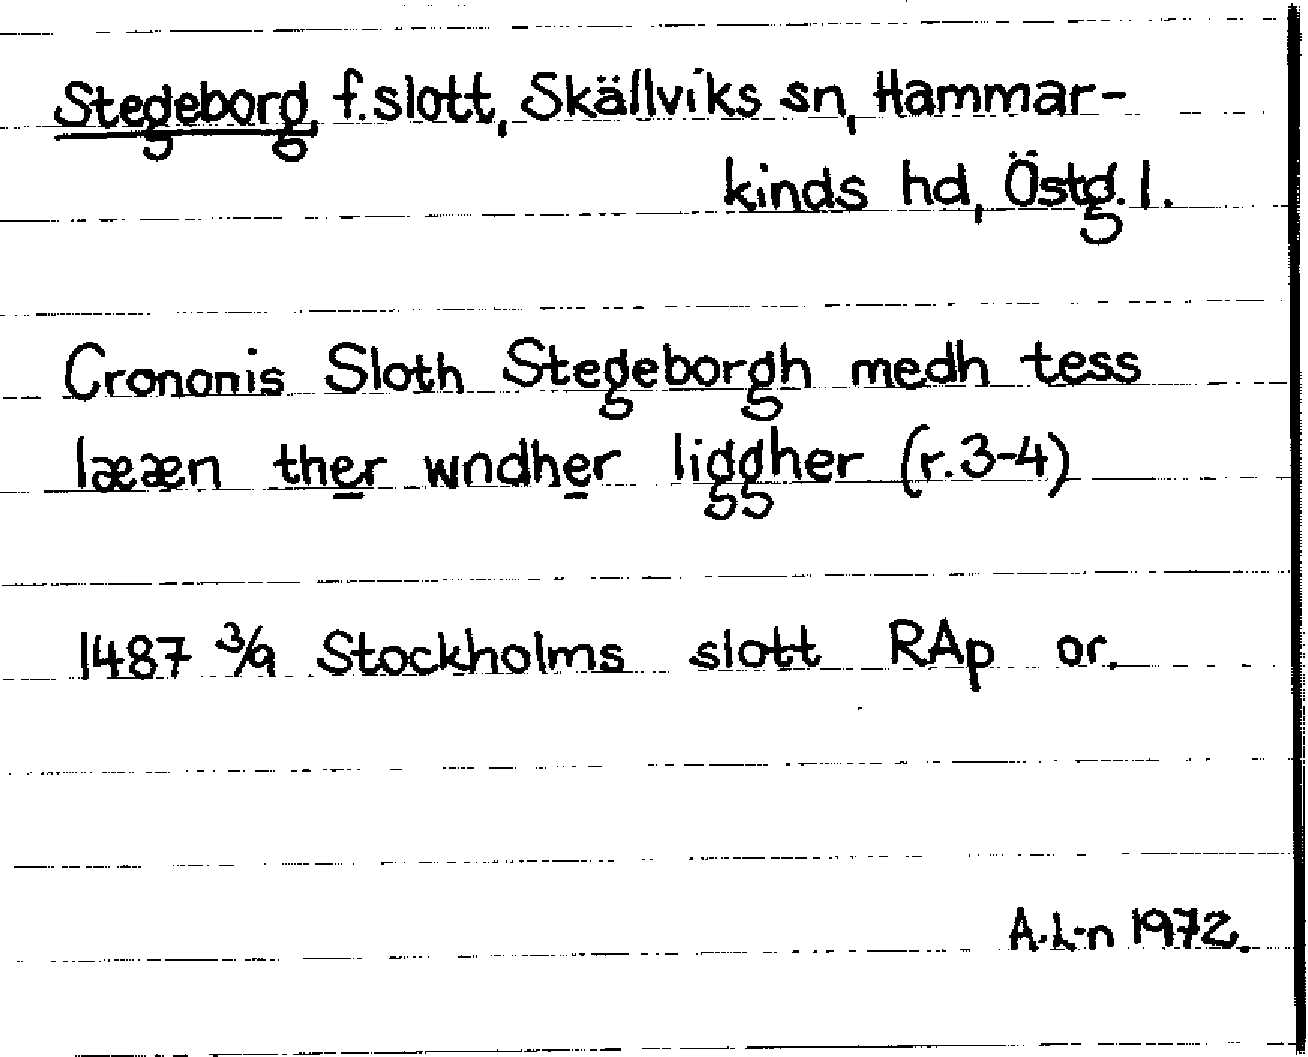 Stegeborg, f.slott, Skällviks sn, Hammar-
kinds hd, Östg.l.
Crononis Sloth Stegeborgh medh tess
lææn ther wndher liggher (r.3-4)
1487 3/9 Stockholms slott RAp or.
A.L-n 1972.